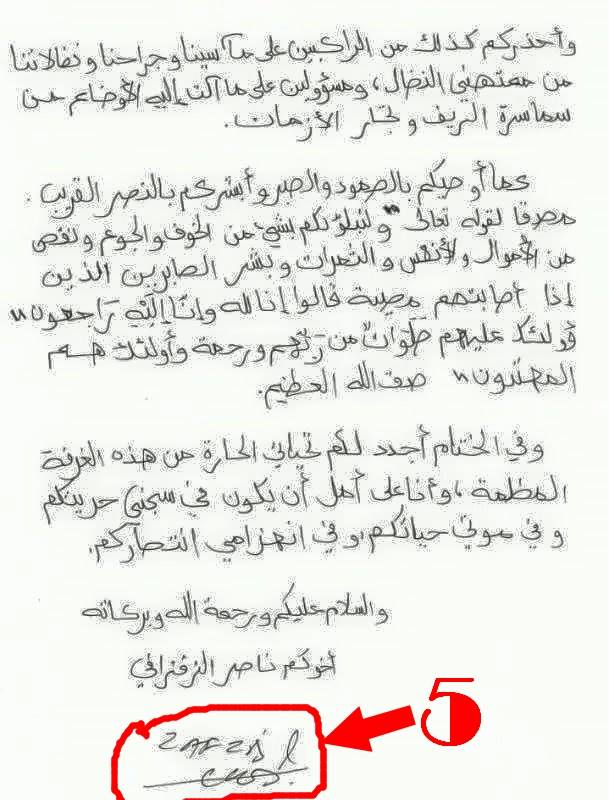 وأحذركم كذلك من الراكبين على مآسينا وجراحنا ونضالاتنا
من ممتهني النضال، ومسؤولين على ما آلت إليه الأوضاع من
سماسرة الريف وتجار الأزمات.
كما أوصيكم بالصمود والصبر وأبشركم بالنصر القريب.
مصدقا لقوله تعالى " ولنبلونكم بشيء من الخوف والجوع ونقص
من الأموال والأنفس والثمرات وبشر الصابرين الذين
إذا أصابتهم مصيبة قالوا إنا لله وإنا إليه راجعون"
أولئك عليهم صلوات من ربهم ورحمة وأولئك هم
المهتدون" صدق الله العظيم.
وفي الختام أجدد لكم تحياتي الحارة من هذه الغرفة
المظلمة، وأنا على أمل أن يكون في سجني حريتكم
وفي موتي حياتكم، وفي انهزامي انتصاركم.
والسلام عليكم ورحمة الله وبركاته
أخوكم ناصر الزفزافي
5